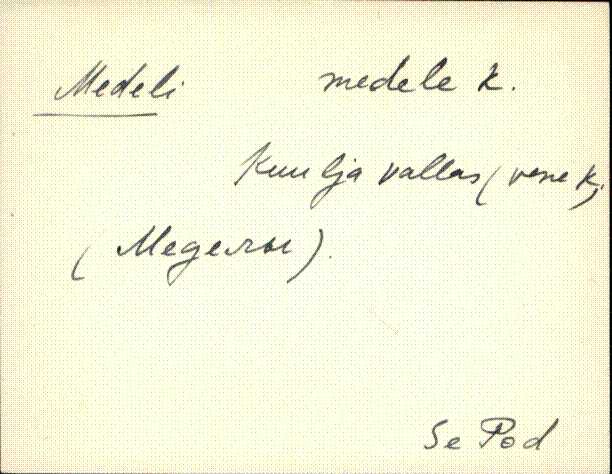 Medeli medele k.
Kuulja vallas (vene k,
(Меделы).
Se Pod